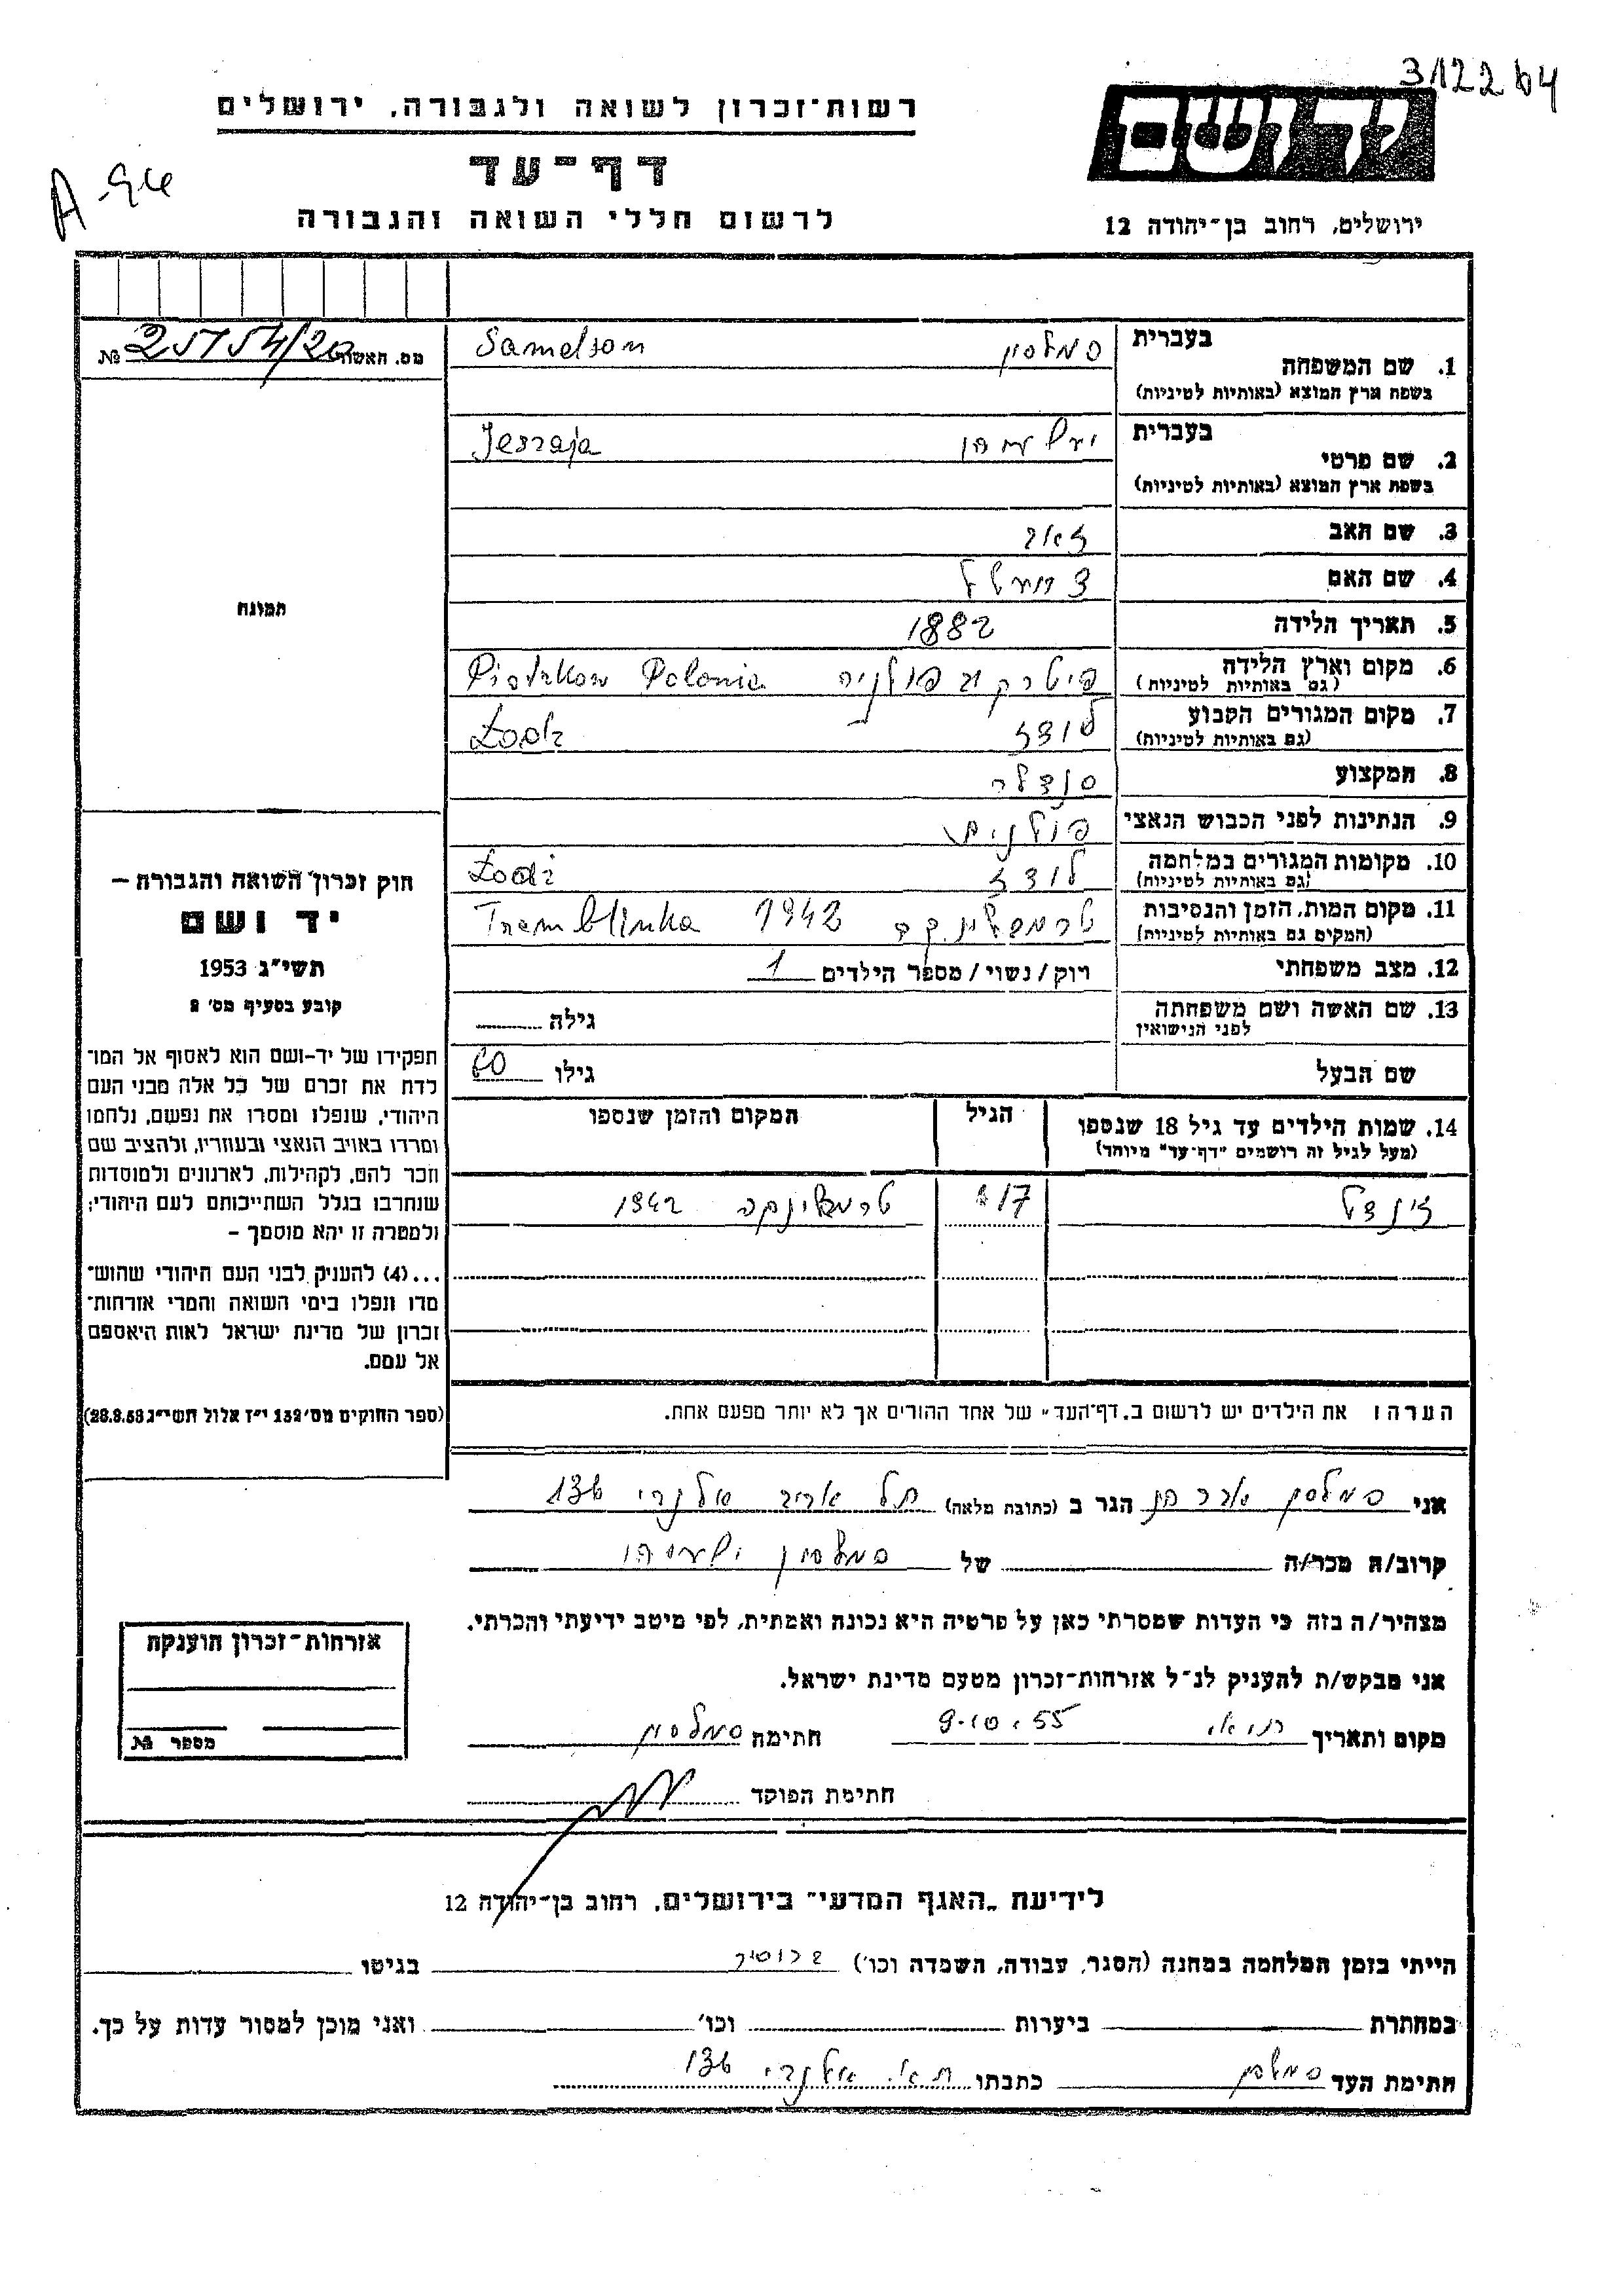 3122 64
רשות־זכרון לשואה ולגבורה, ירושלים
דף־עד
A-94
לרשום חללי השואה והגבורה
ירושלים, רחוב בן־יהודה 12
1. שם המשפחה
בעברית
בשפת ארץ המוצא (באותיות לטיניות)
סמלסון
Samelson
מס. האשור
№
2. שם פרטי
בעברית
בשפת ארץ המוצא (באותיות לטיניות)
Jeszaja
3. שם האב
4. שם האם
5. תאריך הלידה
1882
6. מקום וארץ הלידה
(גם באותיות לטיניות)
פולניה
Piotrkow Polonia
7. מקום המגורים הקבוע
(גם באותיות לטיניות)
לודז
Łodz
8. המקצוע
סנדלר
9. הנתינות לפני הכבוש הנאצי
פולנית
10. מקומות המגורים במלחמה
(גם באותיות לטיניות)
לודז
Łodz
11. מקום המות, הזמן והנסיבות
(המקום גם באותיות לטיניות)
טרמבלינקה
1942
Tremblinka
12. מצב משפחתי
רוק/נשוי/ מספר הילדים 1
13. שם האשה ושם משפחתה
לפני הנישואין
גילה
שם הבעל
גילו 60
14. שמות הילדים עד גיל 18 שנספו
(מעל לגיל זה רושמים "דף־עד" מיוחד)
הגיל
המקום והזמן שנספו
17
טרמבלינקה 1942
הערה: את הילדים יש לרשום ב„דף־העד" של אחד ההורים אך לא יותר מפעם אחת.
תמונה
חוק זכרון השואה והגבורה —
יד ושם
תשי"ג 1953
קובע בסעיף מס' 2
תפקידו של יד-ושם הוא לאסוף אל המו־
לדת את זכרם של כל אלה מבני העם
היהודי, שנפלו ומסרו את נפשם, נלחמו
ומרדו באויב הנאצי ובעוזריו, ולהציב שם
וזכר להם, לקהילות, לארגונים ולמוסדות
שנחרבו בגלל השתייכותם לעם היהודי;
ולמטרה זו יהא מוסמך —
...(4) להעניק לבני העם היהודי שהוש־
מדו ונפלו בימי השואה והמרי אזרחות־
זכרון של מדינת ישראל לאות היאספם
אל עמם.
(ספר החוקים מס' 132 י"ז אלול תשי"ג 28.8.53)
אני סמלסון אברהם הגר ב (כתובת מלאה) תל אביב אלנבי 136
קרוב/ה מכר/ה של סמלסון ישעיהו
מצהיר/ה בזה כי העדות שמסרתי כאן על פרטיה היא נכונה ואמתית, לפי מיטב ידיעתי והכרתי.
אני מבקש/ת להעניק לנ"ל אזרחות־זכרון מטעם מדינת ישראל.
מקום ותאריך 9.10.55 חתימה סמלסון
חתימת הפוקד
אזרחות־זכרון הוענקה
מספר №
לידיעת „האגף המדעי" בירושלים, רחוב בן־יהודה 12
הייתי בזמן המלחמה במחנה (הסגר, עבודה, השמדה וכו') בגיטו
במחתרת ביערות וכו' ואני מוכן למסור עדות על כך.
חתימת העד סמלסון כתבתו ת"א. אלנבי 136